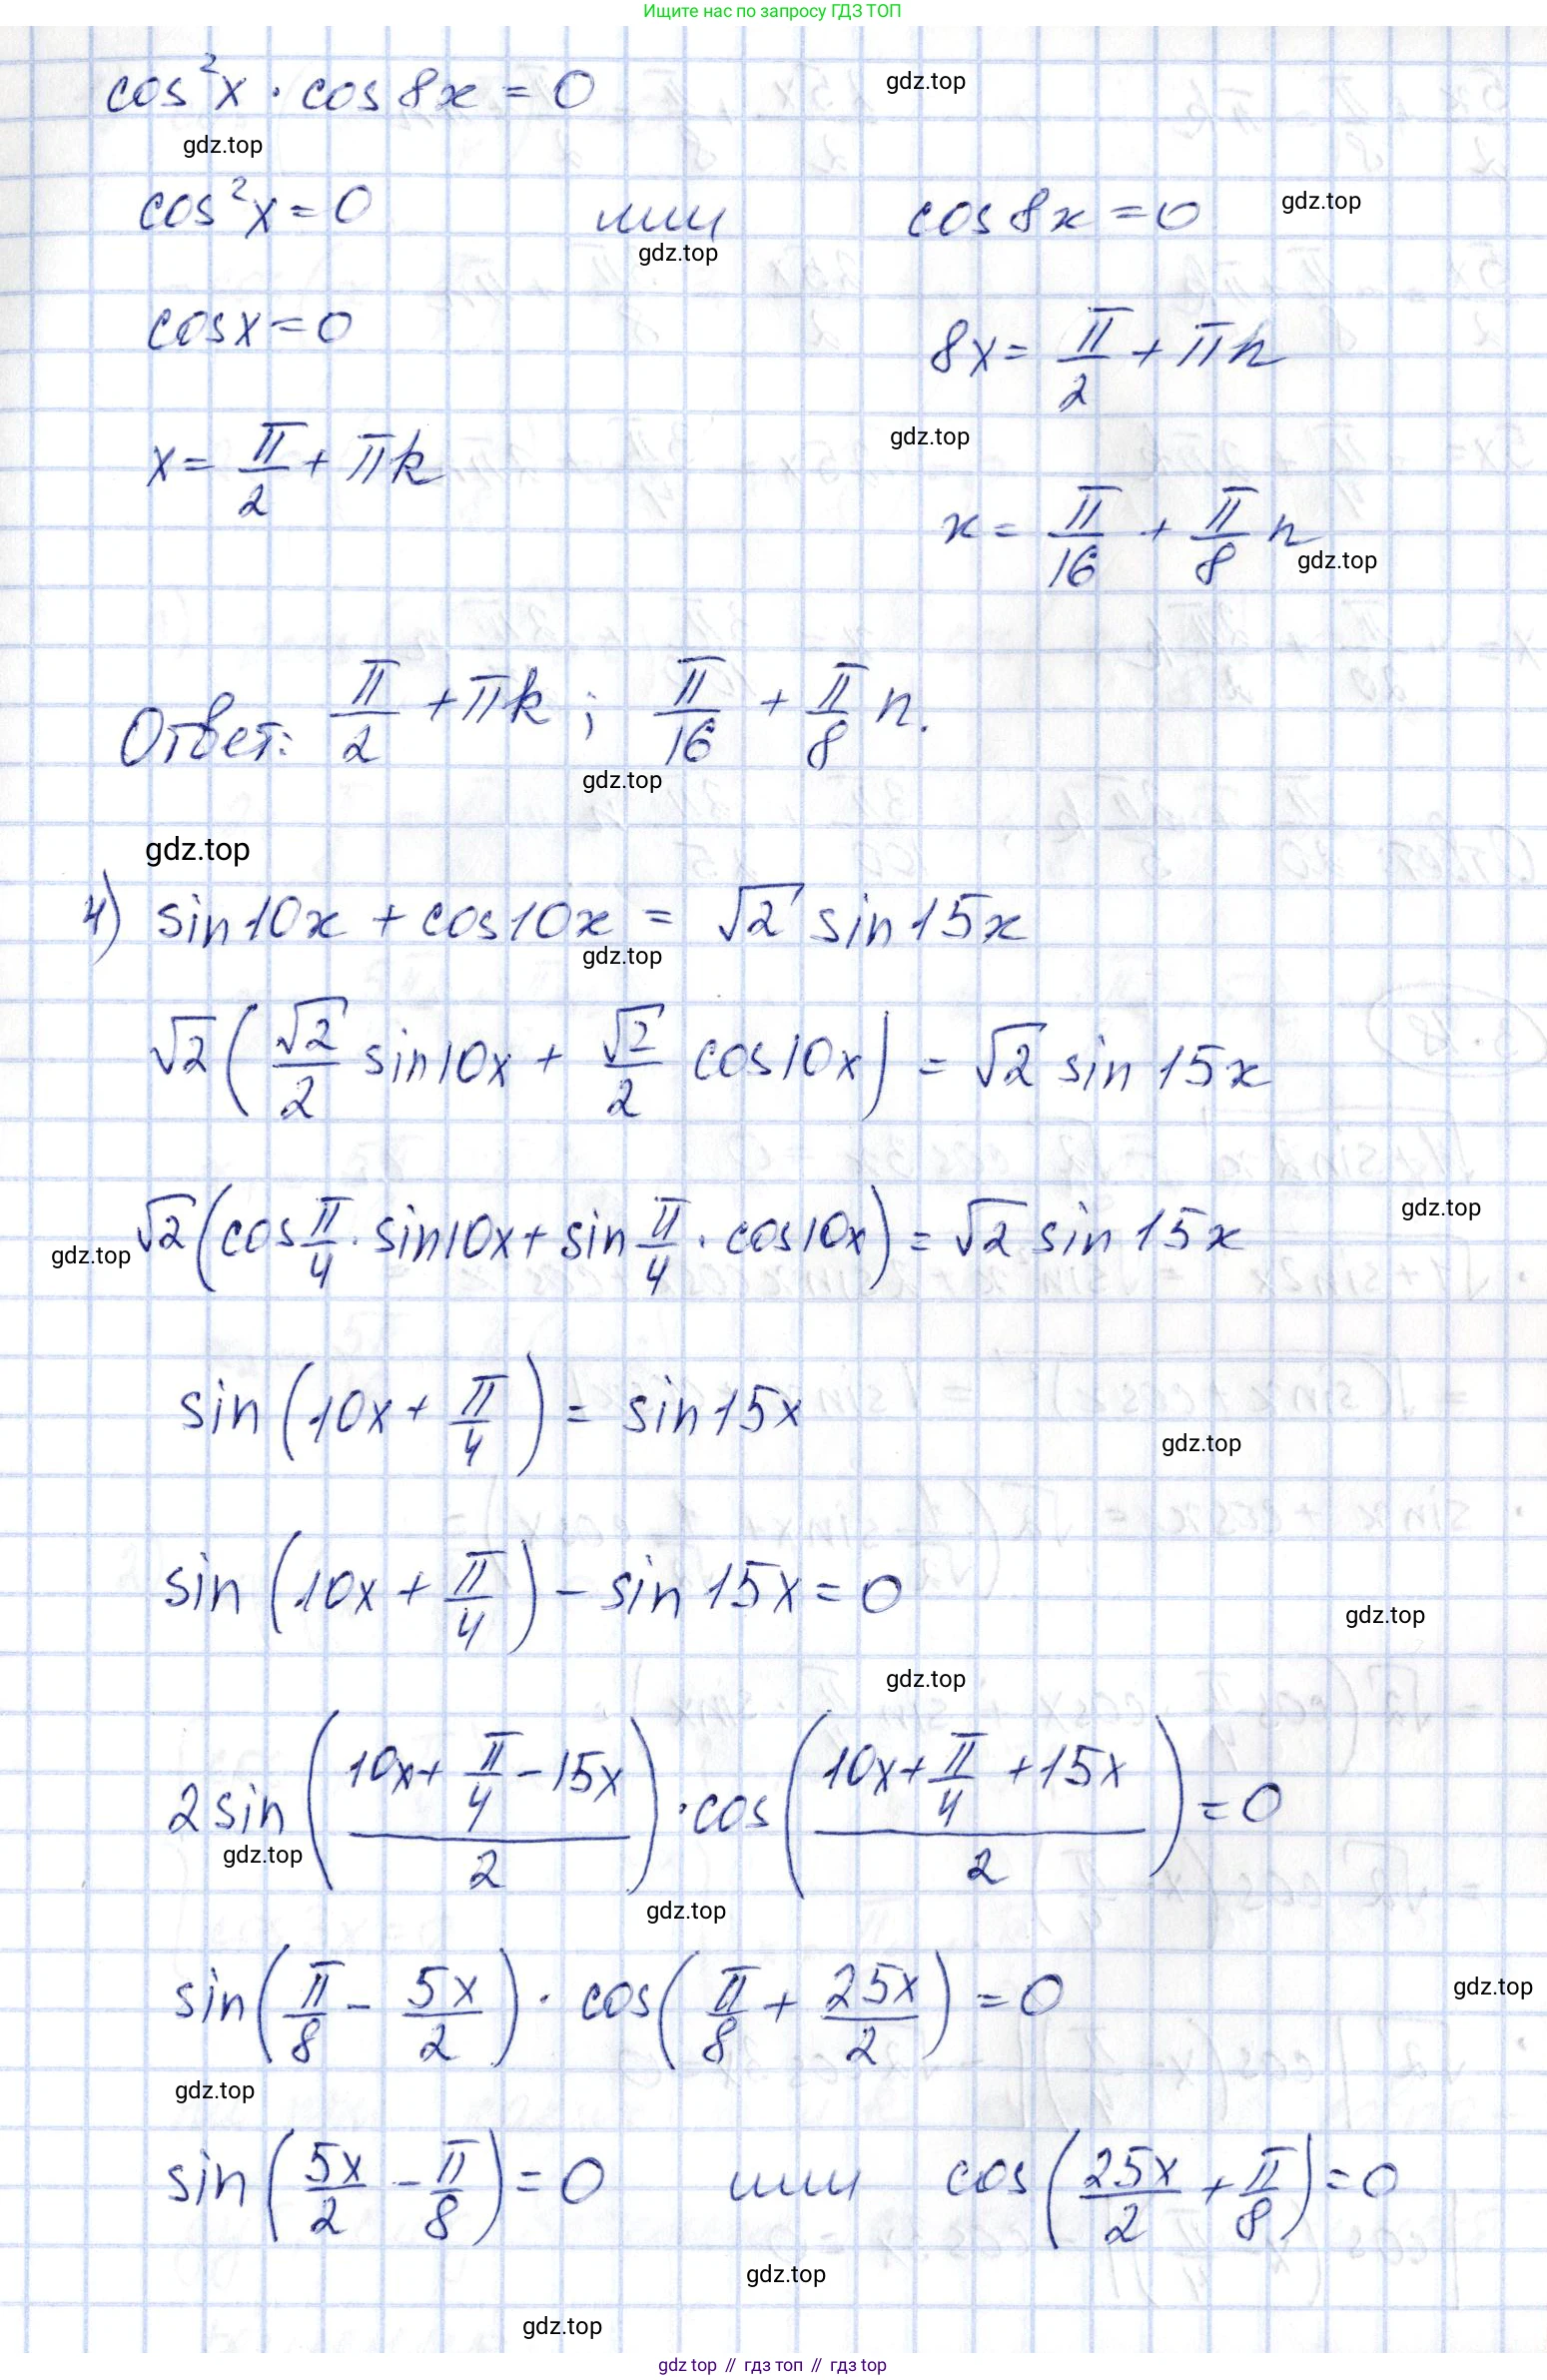 Ищите нас по запросу ГДЗ ТОП
cos²x · cos 8x = 0
gdz.top
gdz.top
cos²x = 0 или cos 8x = 0
gdz.top
gdz.top
cosx = 0
8x = π/2 + πn
x = π/2 + πk
gdz.top
x = π/16 + π/8 n
gdz.top
Ответ: π/2 + πk ; π/16 + π/8 n.
gdz.top
gdz.top
4) sin10x + cos10x = √2 sin15x
gdz.top
√2 ( √2/2 sin10x + √2/2 cos10x ) = √2 sin 15x
gdz.top
√2 (cos π/4 · sin10x + sin π/4 · cos10x) = √2 sin 15x
gdz.top
sin (10x + π/4) = sin15x
gdz.top
sin (10x + π/4) – sin 15x = 0
gdz.top
gdz.top
2 sin ( (10x + π/4 – 15x)/2 ) · cos ( (10x + π/4 + 15x)/2 ) = 0
gdz.top
gdz.top
sin ( π/8 – 5x/2 ) · cos ( π/8 + 25x/2 ) = 0
gdz.top
gdz.top
sin ( 5x/2 – π/8 ) = 0 или cos ( 25x/2 + π/8 ) = 0
gdz.top
gdz.top
gdz top // гдз топ // гдз top